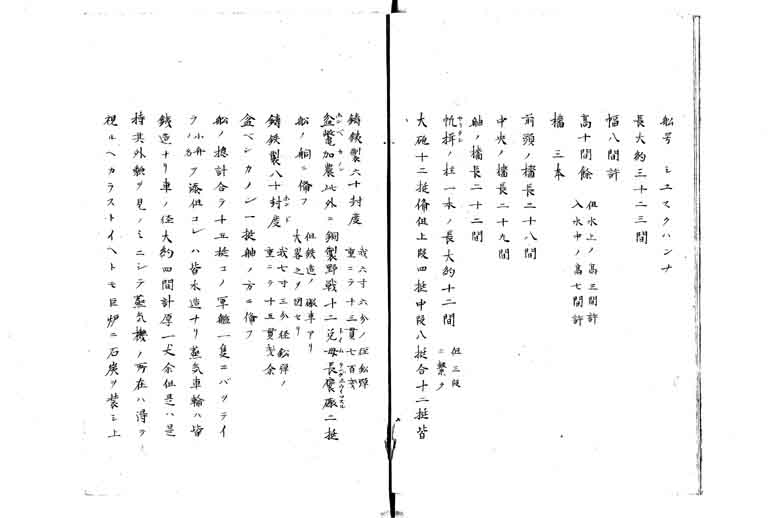 船号 ミユスクハンナ
長大約三十二三間
幅八間許
高十間餘 但水上ノ高三間許 入水中ノ高七間許
檣 三本
前頭ノ檣長二十八間
中央ノ檣長二十九間
舳ノ檣長二十二間
帆掲ノ柱一本ノ長大約十二間 但三段ニ繋ク
大砲十二挺備但上段四挺中段八挺合十二挺皆
鋳鉄製六十封度 我六寸六分ノ径鉛弾重ニテ十三貫七百
盆鼈加農此外ニ銅製野戦十二 長 二挺
船ノ舸ニ備フ 但鉄造ノ砲車アリ大畧之ヲ図セリ
鋳鉄製八十封度 我七寸三分径鉛弾ノ重ニテ十五貫 余
盆ベンカノン一挺舳ノ方ニ備フ
船ノ摠計合テ十五挺コノ軍艦一隻ニバツテイ
ラノ小舟ヲ添但コレハ皆木造ナリ蒸気車輪ハ皆
鉄造ナリ車ノ径大約四間計厚一丈余但是ハ是
持其外軆ヲ見ノミニシテ蒸気機ノ所在ハ得テ
視ルヘカラストイヘトモ巨炉ニ石炭ヲ装ミ上